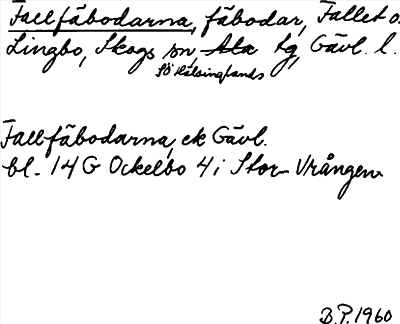 Fallfäbodarna, fäbodar, Fallet o.
Lingbo, Skogs sn, Ala tg, Gävl. l.
SÖ Hälsinglands
Fallfäbodarna, ek Gävl.
bl. 14 G Ockelbo 4 i Stor-Vrången
B.P. 1960